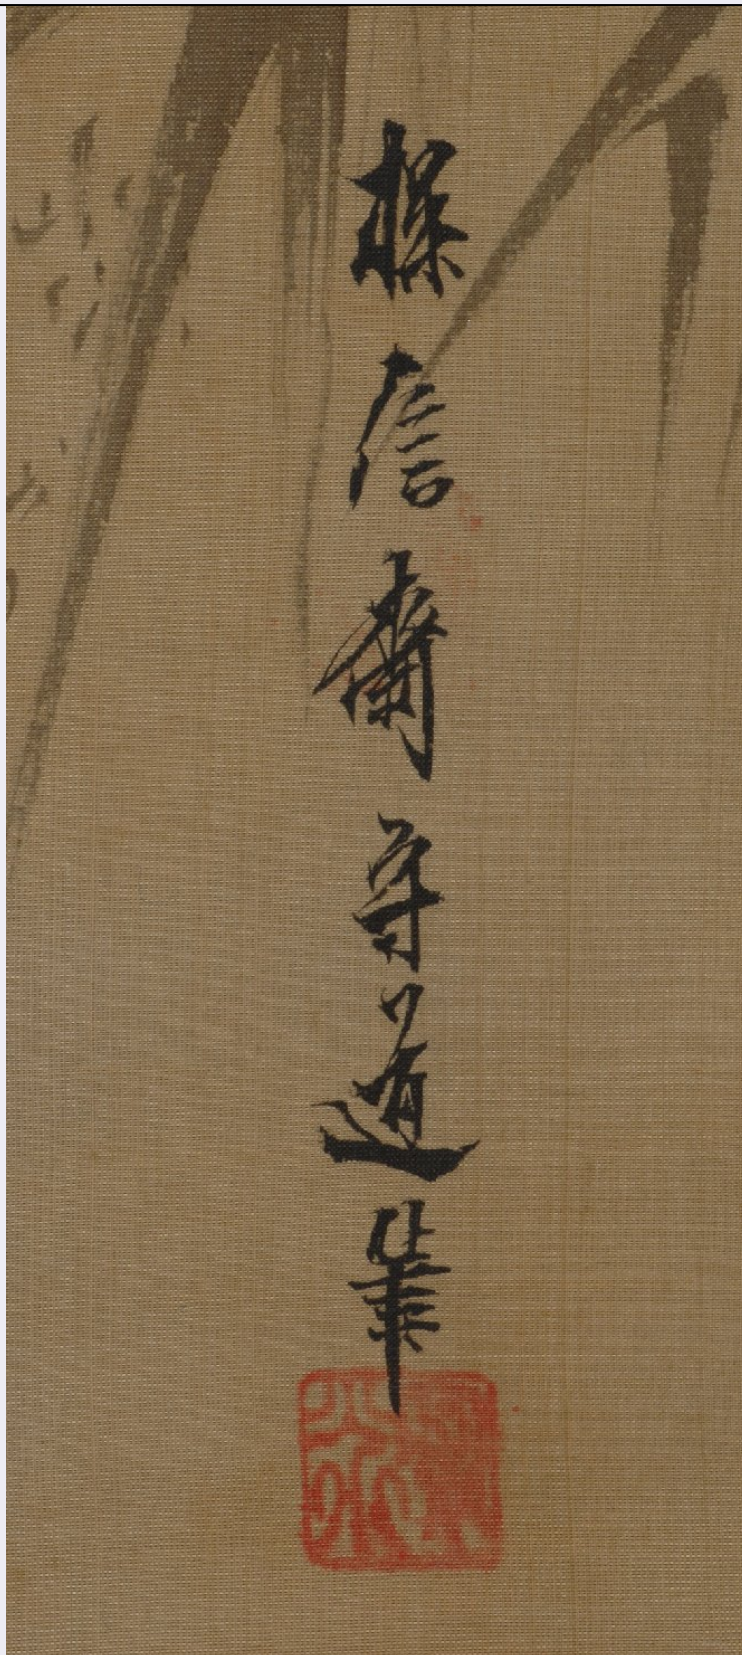 探信齋守道筆